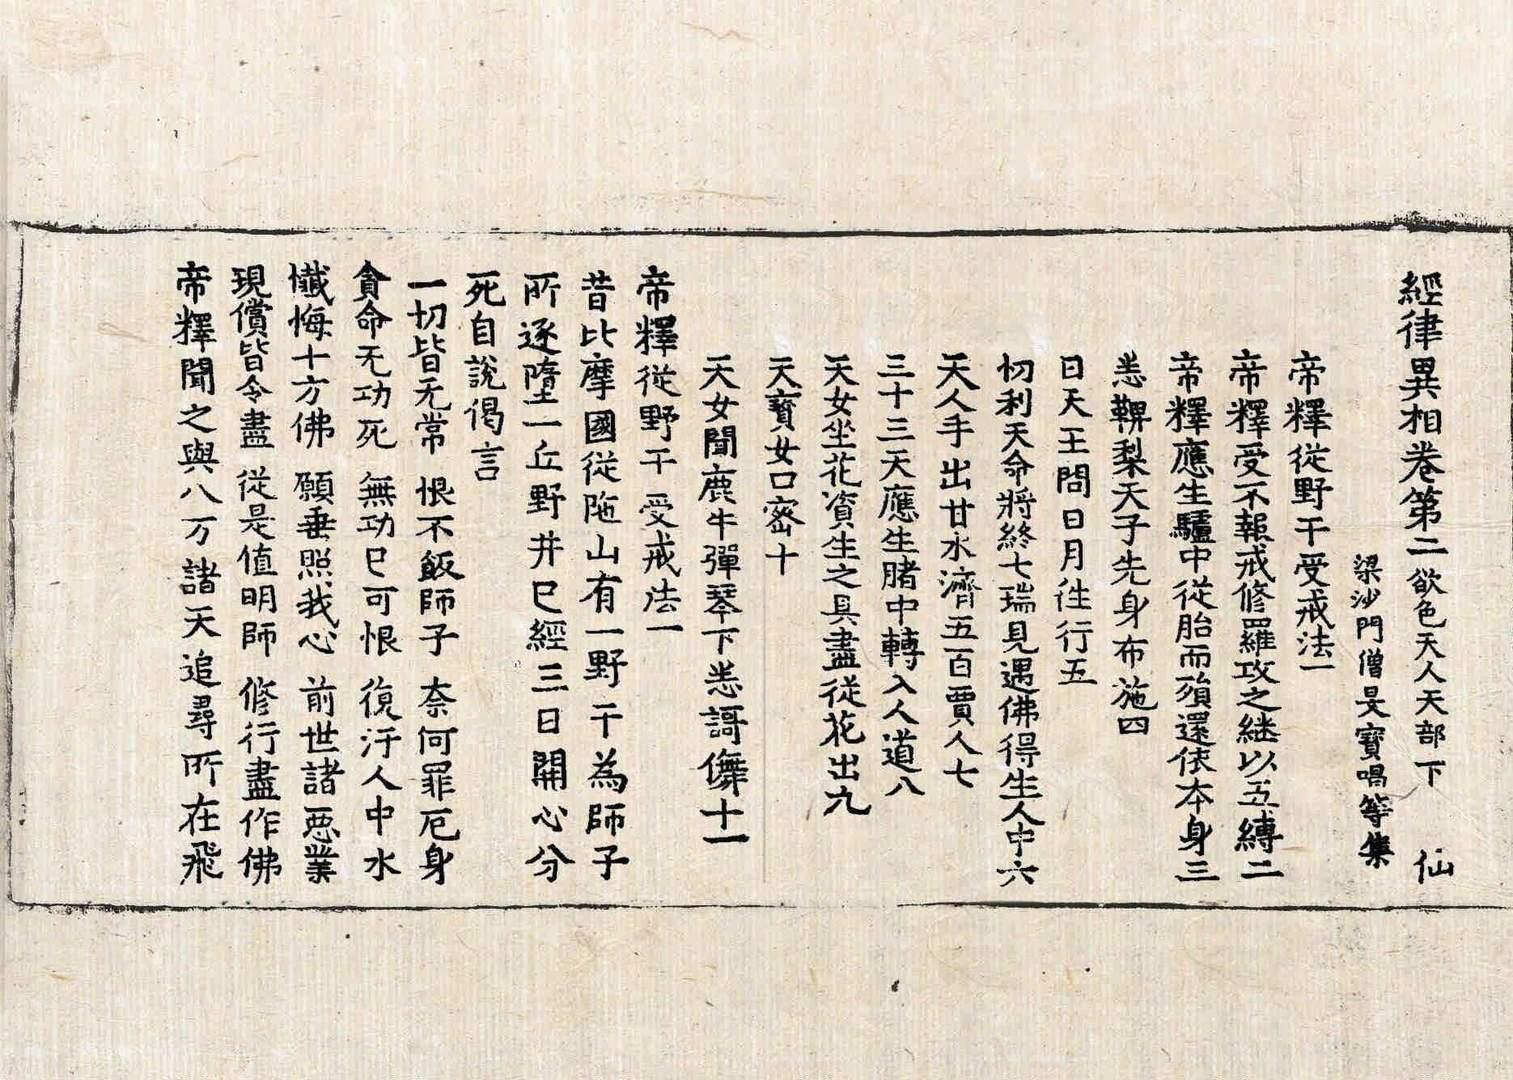 經律異相卷第二 欲色天人天部下 仙
梁沙門僧旻寶唱等集
帝釋從野干受戒法一
帝釋受不報戒修羅攻之継以五縛二
帝釋應生驢中從胎而殞還依本身三
恙鞞梨天子先身布施四
日天王問日月徃行五
忉利天命將終七瑞見遇佛得生人中六
天人手出甘水濟五百賈人七
三十三天應生賭中轉入人道八
天女坐花資生之具盡從花出九
天寶女口密十
天女聞鹿牛彈琴下恙謌儛十一
帝釋從野干受戒法一
昔比摩國從陁山有一野干為師子
所逐墮一丘野井已經三日開心分
死自說偈言
一切皆无常 恨不飯師子 奈何罪厄身
貪命无功死 無功已可恨 復汙人中水
懺悔十方佛 願垂照我心 前世諸惡業
現償皆令盡 從是值明師 修行盡作佛
帝釋聞之與八万諸天追尋所在飛